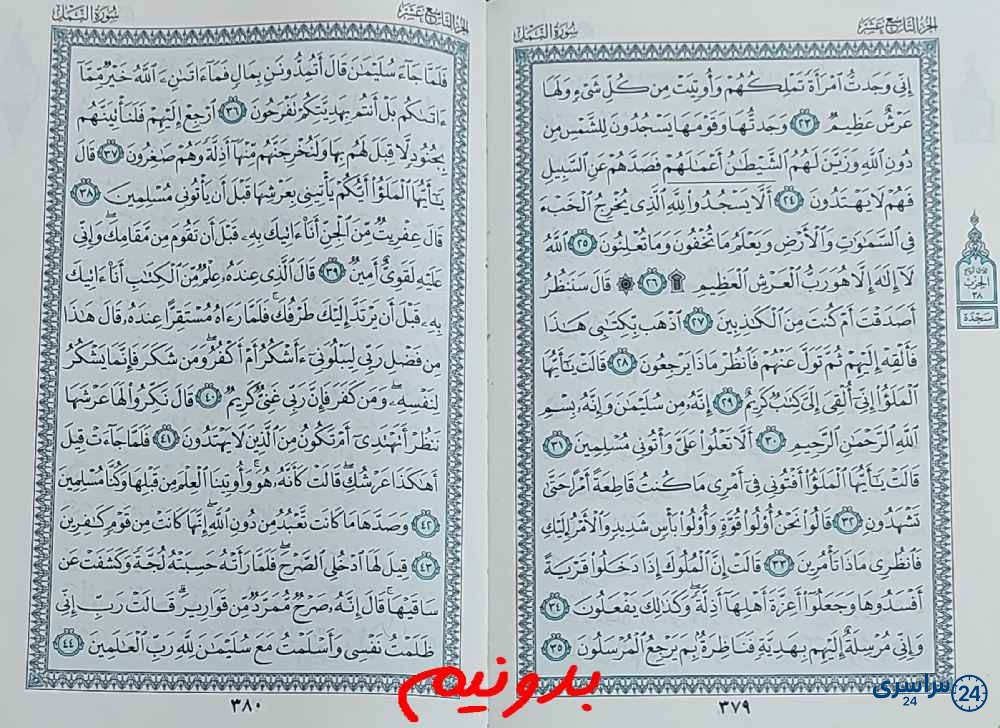 الجزء التاسع عشر
سورة النمل
إِنِّي وَجَدتُّ ٱمْرَأَةً تَمْلِكُهُمْ وَأُوتِيَتْ مِن كُلِّ شَيْءٍ وَلَهَا
عَرْشٌ عَظِيمٌ ٢٣ وَجَدتُّهَا وَقَوْمَهَا يَسْجُدُونَ لِلشَّمْسِ مِن
دُونِ ٱللَّهِ وَزَيَّنَ لَهُمُ ٱلشَّيْطَٰنُ أَعْمَٰلَهُمْ فَصَدَّهُمْ عَنِ ٱلسَّبِيلِ
فَهُمْ لَا يَهْتَدُونَ ٢٤ أَلَّا يَسْجُدُوا۟ لِلَّهِ ٱلَّذِي يُخْرِجُ ٱلْخَبْءَ
فِي ٱلسَّمَٰوَٰتِ وَٱلْأَرْضِ وَيَعْلَمُ مَا تُخْفُونَ وَمَا تُعْلِنُونَ ٢٥ ٱللَّهُ
لَآ إِلَٰهَ إِلَّا هُوَ رَبُّ ٱلْعَرْشِ ٱلْعَظِيمِ ۩ ٢٦ ۞ قَالَ سَنَنظُرُ
أَصَدَقْتَ أَمْ كُنتَ مِنَ ٱلْكَٰذِبِينَ ٢٧ ٱذْهَب بِّكِتَٰبِي هَٰذَا
فَأَلْقِهْ إِلَيْهِمْ ثُمَّ تَوَلَّ عَنْهُمْ فَٱنظُرْ مَاذَا يَرْجِعُونَ ٢٨ قَالَتْ يَٰٓأَيُّهَا
ٱلْمَلَؤُا۟ إِنِّيٓ أُلْقِيَ إِلَيَّ كِتَٰبٌ كَرِيمٌ ٢٩ إِنَّهُۥ مِن سُلَيْمَٰنَ وَإِنَّهُۥ بِسْمِ
ٱللَّهِ ٱلرَّحْمَٰنِ ٱلرَّحِيمِ ٣٠ أَلَّا تَعْلُوا۟ عَلَيَّ وَأْتُونِي مُسْلِمِينَ ٣١
قَالَتْ يَٰٓأَيُّهَا ٱلْمَلَؤُا۟ أَفْتُونِي فِيٓ أَمْرِي مَا كُنتُ قَاطِعَةً أَمْرًا حَتَّىٰ
تَشْهَدُونِ ٣٢ قَالُوا۟ نَحْنُ أُو۟لُوا۟ قُوَّةٍ وَأُو۟لُوا۟ بَأْسٍ شَدِيدٍ وَٱلْأَمْرُ إِلَيْكِ
فَٱنظُرِي مَاذَا تَأْمُرِينَ ٣٣ قَالَتْ إِنَّ ٱلْمُلُوكَ إِذَا دَخَلُوا۟ قَرْيَةً
أَفْسَدُوهَا وَجَعَلُوٓا۟ أَعِزَّةَ أَهْلِهَآ أَذِلَّةً ۖ وَكَذَٰلِكَ يَفْعَلُونَ ٣٤
وَإِنِّي مُرْسِلَةٌ إِلَيْهِم بِهَدِيَّةٍ فَنَاظِرَةٌۢ بِمَ يَرْجِعُ ٱلْمُرْسَلُونَ ٣٥
٣٧٩
الحزب
٣٨
سجدة
الجزء التاسع عشر
سورة النمل
فَلَمَّا جَآءَ سُلَيْمَٰنَ قَالَ أَتُمِدُّونَنِ بِمَالٍ فَمَآ ءَاتَىٰنِۦَ ٱللَّهُ خَيْرٌ مِّمَّآ
ءَاتَىٰكُم بَلْ أَنتُم بِهَدِيَّتِكُمْ تَفْرَحُونَ ٣٦ ٱرْجِعْ إِلَيْهِمْ فَلَنَأْتِيَنَّهُم
بِجُنُودٍ لَّا قِبَلَ لَهُم بِهَا وَلَنُخْرِجَنَّهُم مِّنْهَآ أَذِلَّةً وَهُمْ صَٰغِرُونَ ٣٧ قَالَ
يَٰٓأَيُّهَا ٱلْمَلَؤُا۟ أَيُّكُمْ يَأْتِينِي بِعَرْشِهَا قَبْلَ أَن يَأْتُونِي مُسْلِمِينَ ٣٨
قَالَ عِفْرِيتٌ مِّنَ ٱلْجِنِّ أَنَا۠ ءَاتِيكَ بِهِۦ قَبْلَ أَن تَقُومَ مِن مَّقَامِكَ ۖ وَإِنِّي
عَلَيْهِ لَقَوِيٌّ أَمِينٌ ٣٩ قَالَ ٱلَّذِي عِندَهُۥ عِلْمٌ مِّنَ ٱلْكِتَٰبِ أَنَا۠ ءَاتِيكَ
بِهِۦ قَبْلَ أَن يَرْتَدَّ إِلَيْكَ طَرْفُكَ ۚ فَلَمَّا رَءَاهُ مُسْتَقِرًّا عِندَهُۥ قَالَ هَٰذَا
مِن فَضْلِ رَبِّي لِيَبْلُوَنِيٓ ءَأَشْكُرُ أَمْ أَكْفُرُ ۖ وَمَن شَكَرَ فَإِنَّمَا يَشْكُرُ
لِنَفْسِهِۦ ۖ وَمَن كَفَرَ فَإِنَّ رَبِّي غَنِيٌّ كَرِيمٌ ٤٠ قَالَ نَكِّرُوا۟ لَهَا عَرْشَهَا
نَنظُرْ أَتَهْتَدِيٓ أَمْ تَكُونُ مِنَ ٱلَّذِينَ لَا يَهْتَدُونَ ٤١ فَلَمَّا جَآءَتْ قِيلَ
أَهَٰكَذَا عَرْشُكِ ۖ قَالَتْ كَأَنَّهُۥ هُوَ ۚ وَأُوتِينَا ٱلْعِلْمَ مِن قَبْلِهَا وَكُنَّا مُسْلِمِينَ
٤٢ وَصَدَّهَا مَا كَانَت تَّعْبُدُ مِن دُونِ ٱللَّهِ ۖ إِنَّهَا كَانَتْ مِن قَوْمٍ كَٰفِرِينَ
٤٣ قِيلَ لَهَا ٱدْخُلِي ٱلصَّرْحَ ۖ فَلَمَّا رَأَتْهُ حَسِبَتْهُ لُجَّةً وَكَشَفَتْ عَن
سَاقَيْهَا ۚ قَالَ إِنَّهُۥ صَرْحٌ مُّمَرَّدٌ مِّن قَوَارِيرَ ۗ قَالَتْ رَبِّ إِنِّي
ظَلَمْتُ نَفْسِي وَأَسْلَمْتُ مَعَ سُلَيْمَٰنَ لِلَّهِ رَبِّ ٱلْعَٰلَمِينَ ٤٤
٣٨٠
بدونیم
سراسری
24
24